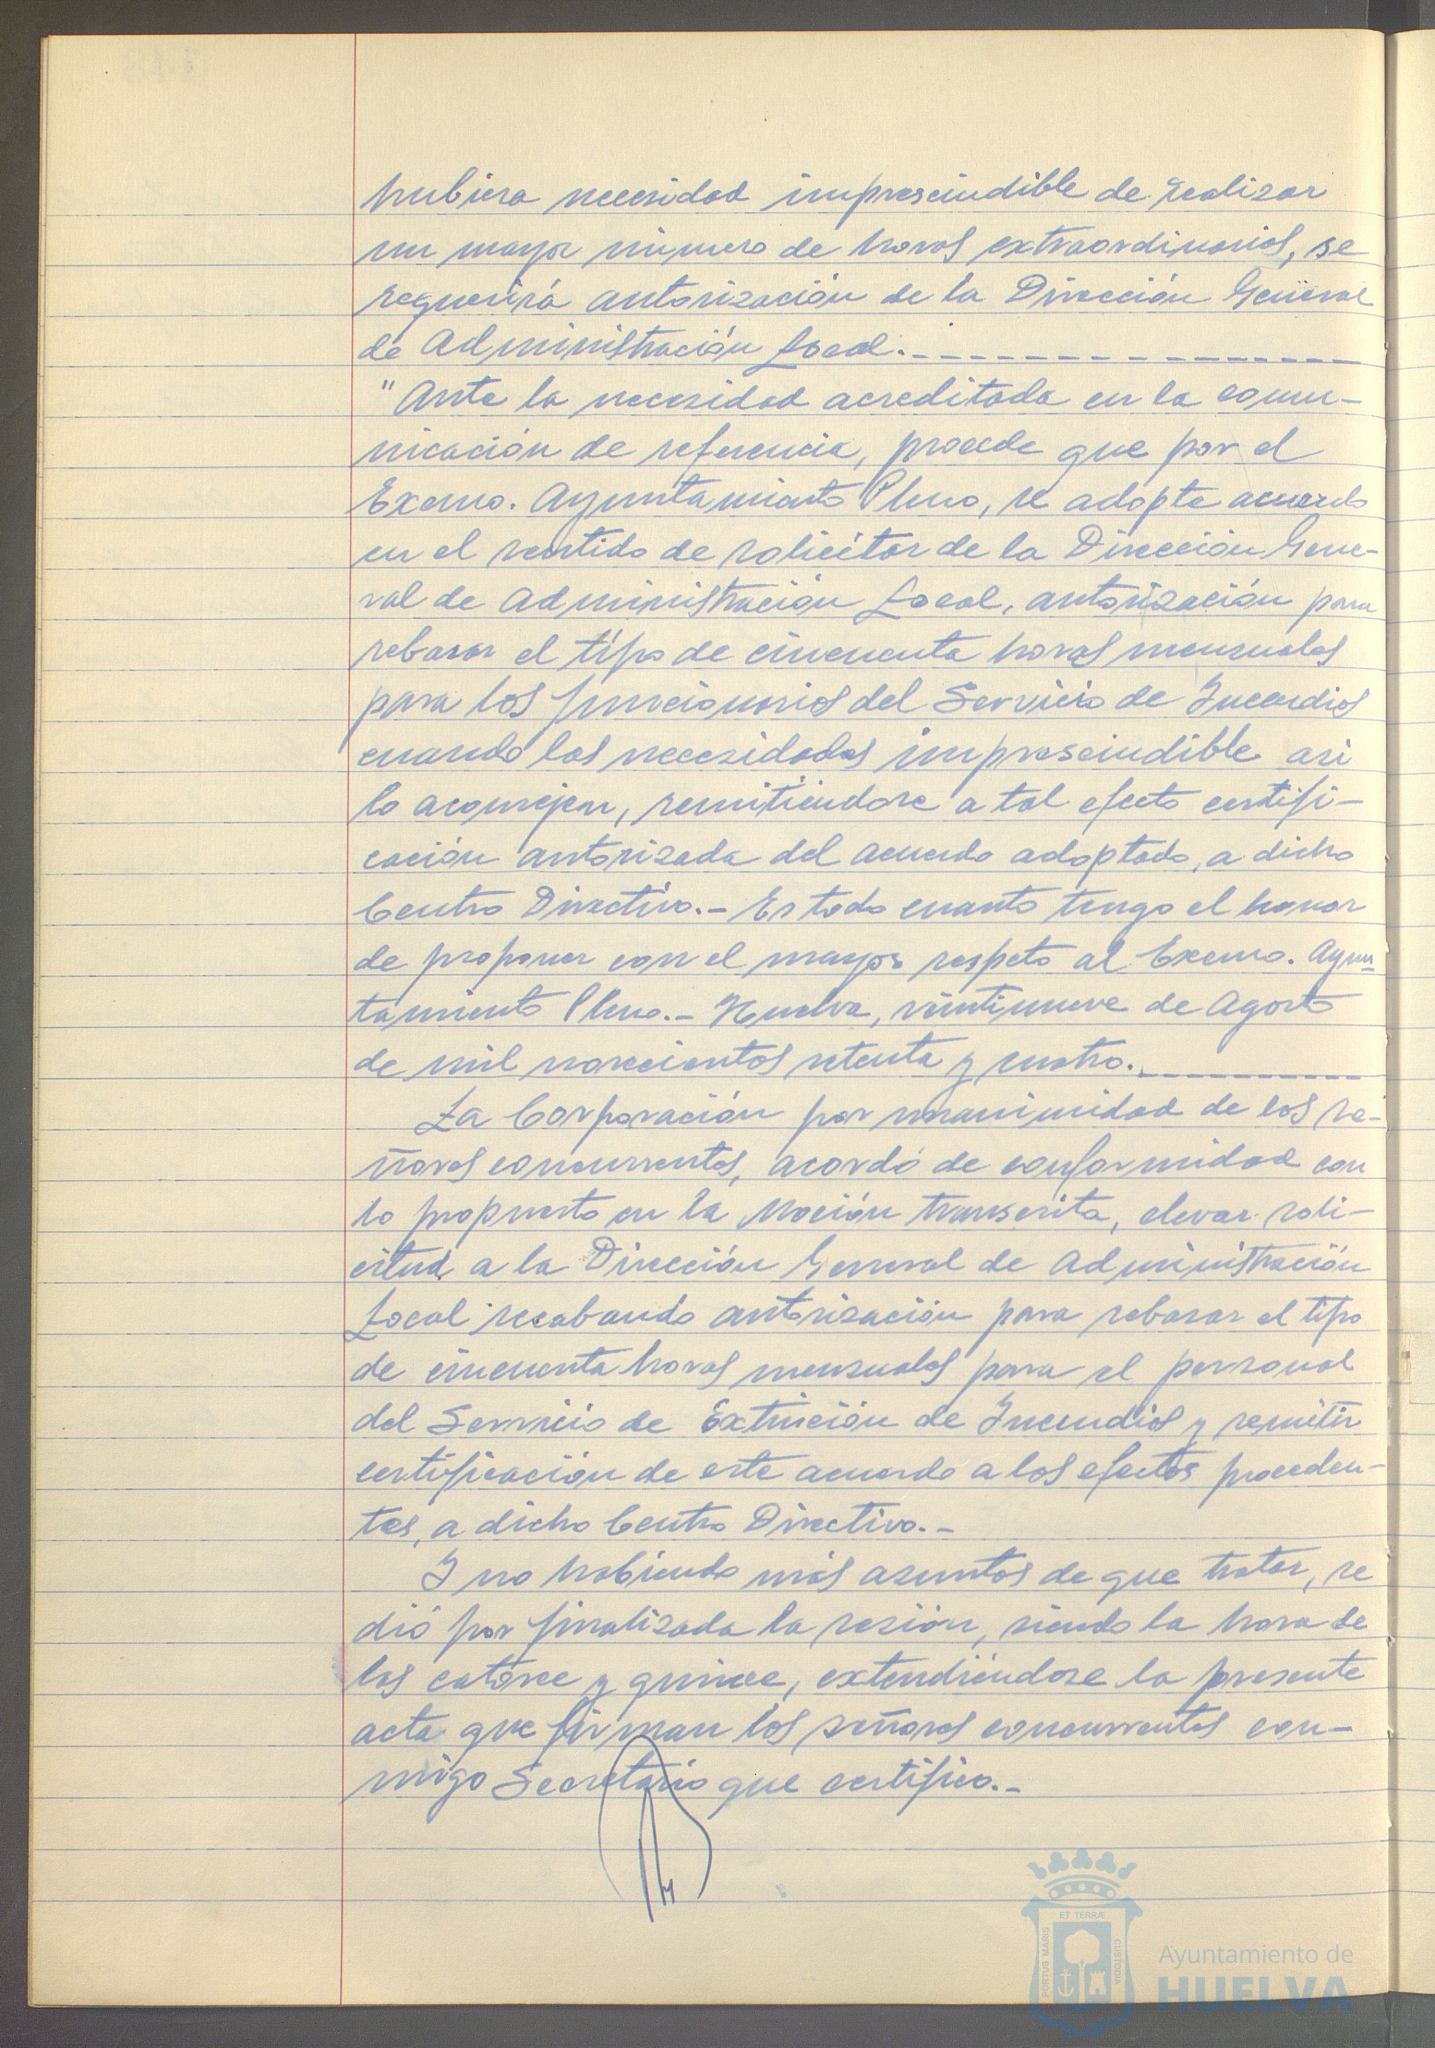 hubiera necesidad imprescindible de realizar
un mayor número de horas extraordinarias, se
requerirá autorización de la Dirección General
de Administración Local.
"Ante la necesidad acreditada en la comu-
nicación de referencia, procede que por el
Excmo. Ayuntamiento Pleno, se adopte acuerdo
en el sentido de solicitar de la Dirección Gene-
ral de Administración Local, autorización para
rebasar el tipo de cincuenta horas mensuales
para los funcionarios del Servicio de Incendios
cuando las necesidades imprescindible asi
lo aconsejen, remitiéndose a tal efecto certifi-
cación autorizada del acuerdo adoptado, a dicho
Centro Directivo.- Es todo cuanto tengo el honor
de proponer con el mayor respeto al Excmo. Ayun-
tamiento Pleno.- Huelva, veintinueve de Agosto
de mil novecientos setenta y cuatro.
La Corporación por unanimidad de los se-
ñores concurrentes, acordó de conformidad con
lo propuesto en la Moción transcrita, elevar soli-
citud a la Dirección General de Administración
Local recabando autorización para rebasar el tipo
de cincuenta horas mensuales para el personal
del Servicio de Extinción de Incendios y remitir
certificación de este acuerdo a los efectos proceden-
tes, a dicho Centro Directivo.-
Y no habiendo más asuntos de que tratar, se
dió por finalizada la sesión, siendo la hora de
las catorce y quince, extendiéndose la presente
acta que firman los señores concurrentes con-
migo Secretario que certifico.-
ET TERRÆ
PORTUS MARIS
CUSTODIA
Ayuntamiento de
HUELVA